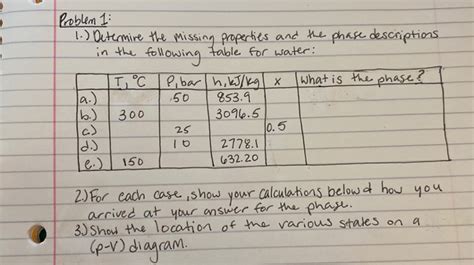 Problem 1:
1.) Determine the missing properties and the phase descriptions
in the following table for water:
T, °C P, bar h, kJ/kg x What is the phase?
a.) 50 853.9
b.) 300 3096.5
c.) 25 0.5
d.) 10 2778.1
e.) 150 632.20
2) For each case, show your calculations below & how you
arrived at your answer for the phase.
3) Show the location of the various states on a
(p-v) diagram.